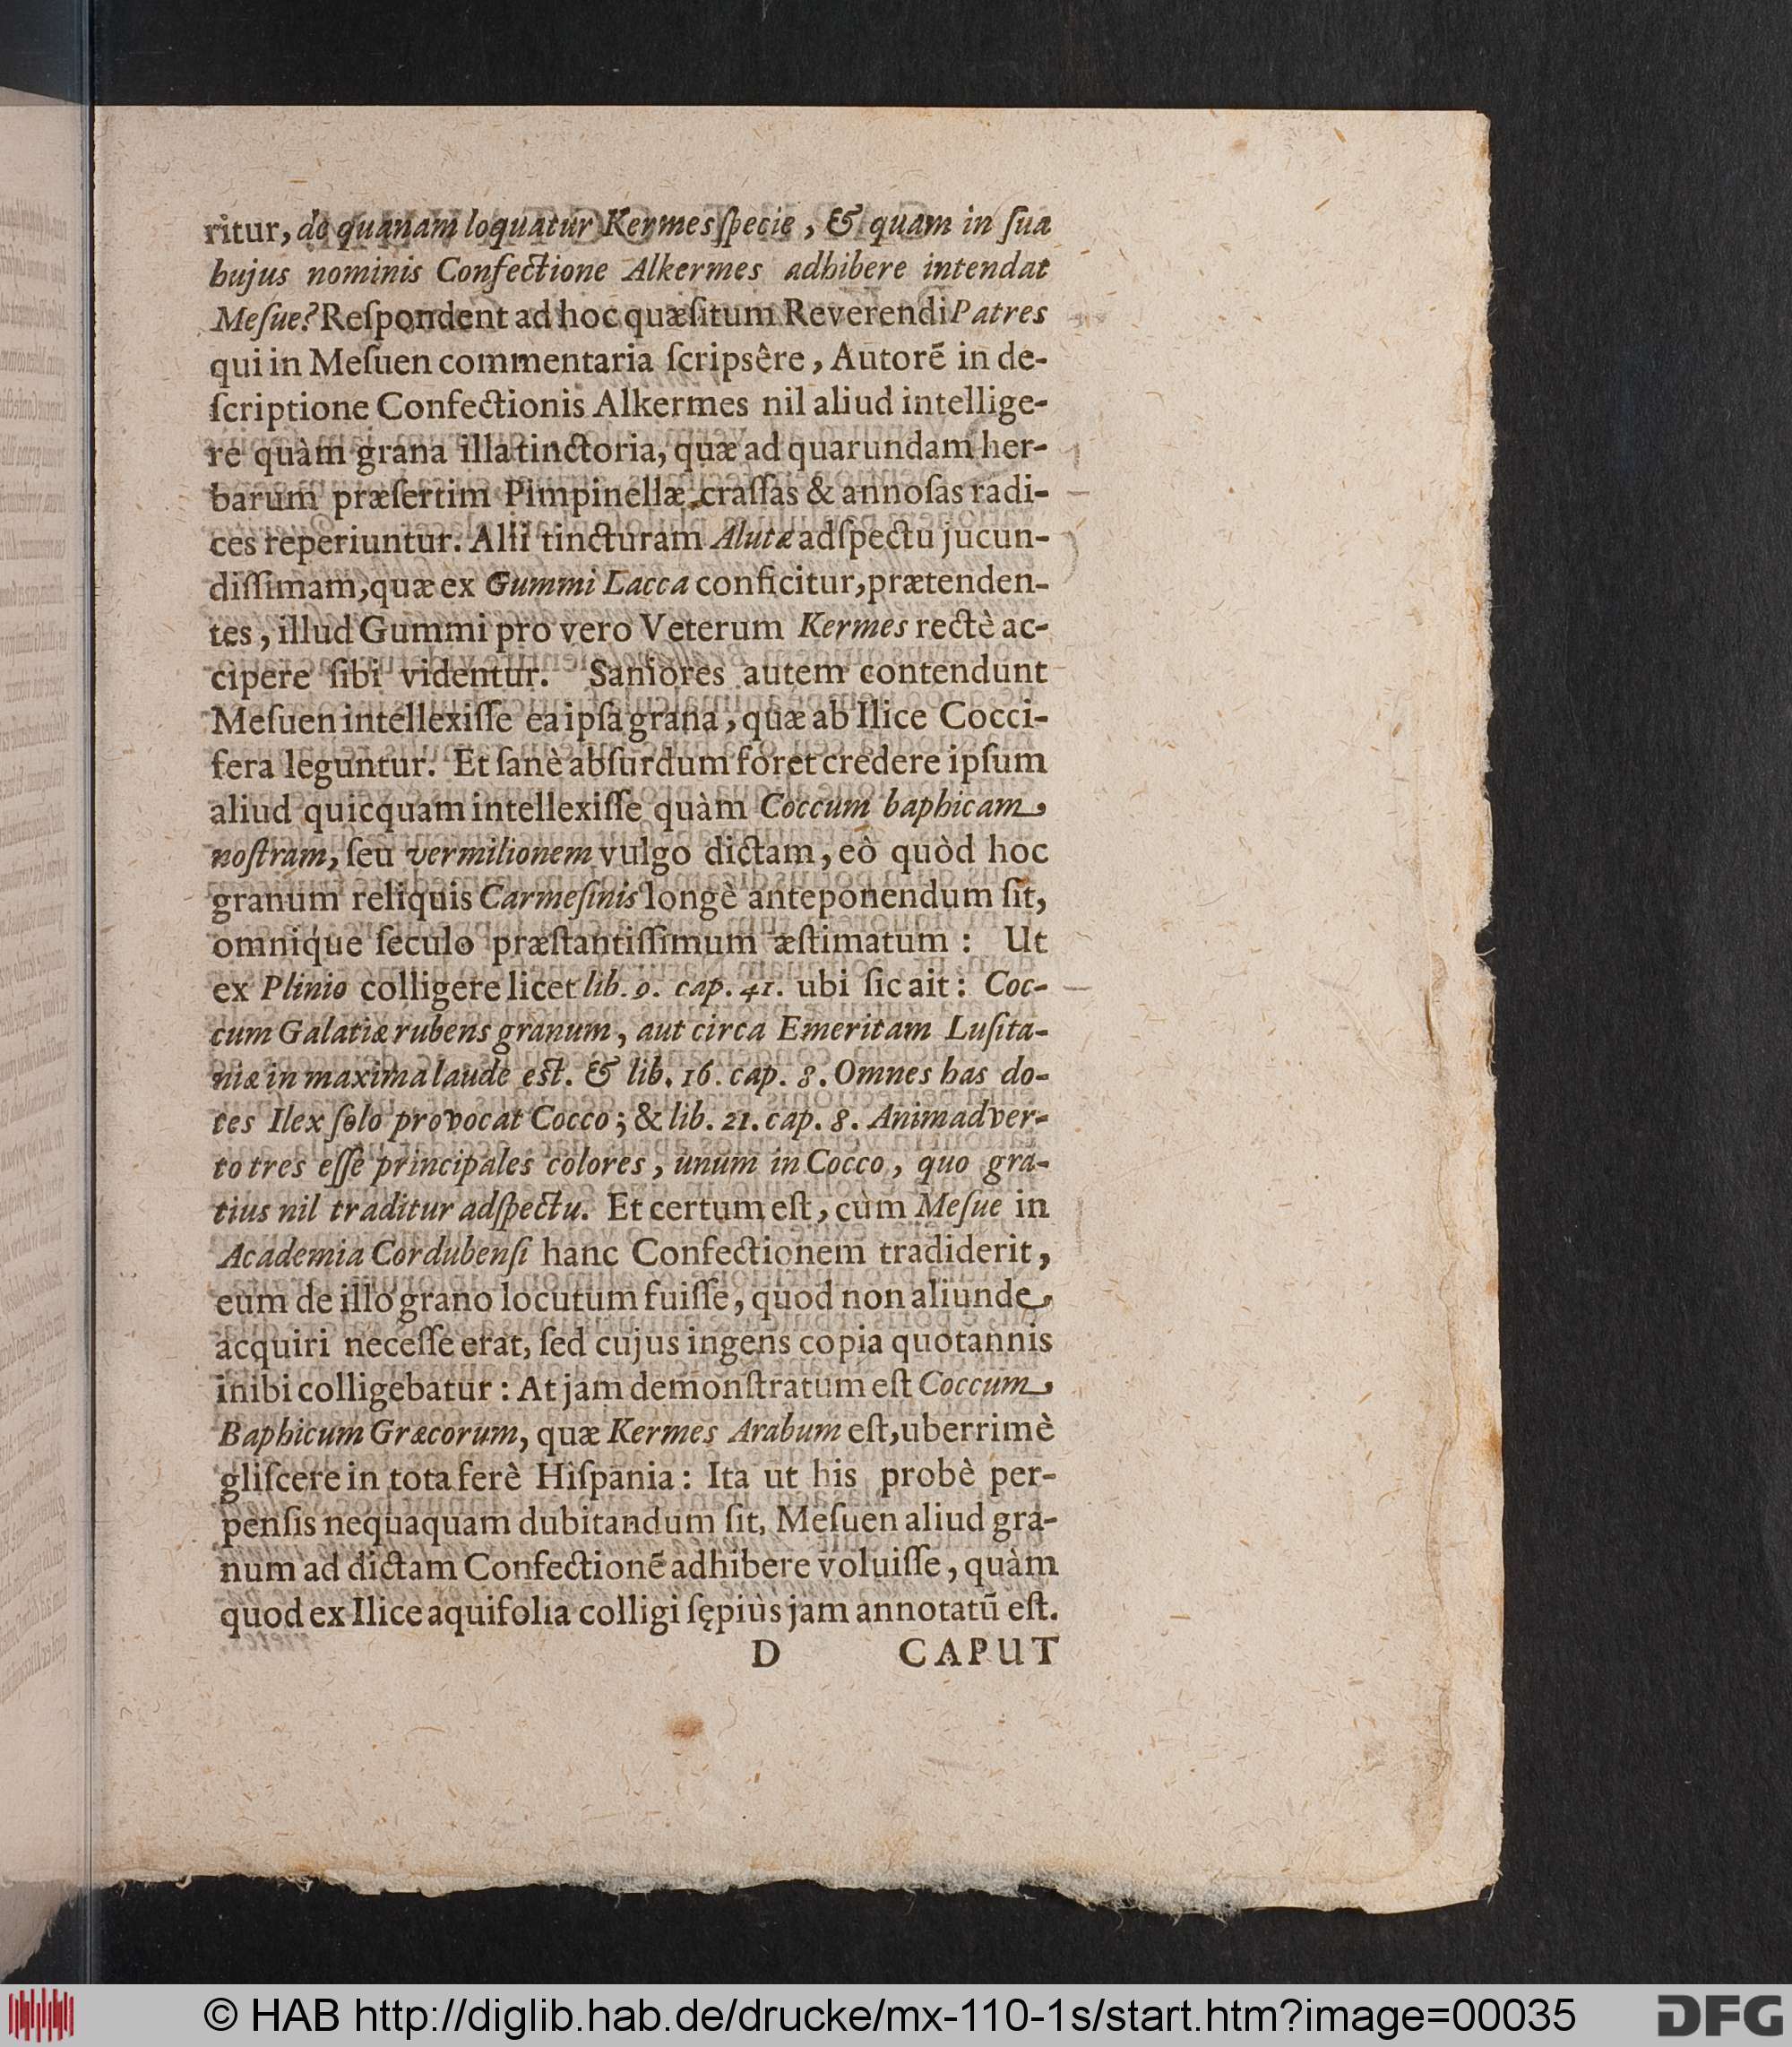 ritur, de quanam loquatur Kermes ſpecie, & quam in ſua
hujus nominis Confectione Alkermes adhibere intendat
Meſue? Reſpondent ad hoc quæſitum Reverendi Patres
qui in Meſuen commentaria ſcripsêre, Autorẽ in de-
ſcriptione Confectionis Alkermes nil aliud intellige-
re quàm grana illa tinctoria, quæ ad quarundam her-
barum præſertim Pimpinellæ craſſas & annoſas radi-
ces reperiuntur. Alii tincturam Alutæ adſpectu jucun-
diſſimam, quæ ex Gummi Lacca conficitur, prætenden-
tes, illud Gummi pro vero Veterum Kermes rectè ac-
cipere ſibi videntur. Saniores autem contendunt
Meſuen intellexiſſe ea ipſa grana, quæ ab Ilice Cocci-
fera leguntur. Et ſanè abſurdum foret credere ipſum
aliud quicquam intellexiſſe quàm Coccum baphicam
noſtram, ſeu vermilionem vulgo dictam, eò quòd hoc
granum reliquis Carmeſinis longè anteponendum ſit,
omnique ſeculo præſtantiſſimum æſtimatum: Ut
ex Plinio colligere licet lib. 9. cap. 41. ubi ſic ait: Coc-
cum Galatiæ rubens granum, aut circa Emeritam Luſita-
niæ in maxima laude eſt. & lib. 16. cap. 8. Omnes has do-
tes Ilex ſolo provocat Cocco; & lib. 21. cap. 8. Animadver-
to tres eſſe principales colores, unum in Cocco, quo gra-
tius nil traditur adſpectu. Et certum eſt, cùm Meſue in
Academia Cordubenſi hanc Confectionem tradiderit,
eum de illo grano locutum fuiſſe, quod non aliunde
acquiri neceſſe erat, ſed cujus ingens copia quotannis
inibi colligebatur: At jam demonſtratum eſt Coccum
Baphicum Græcorum, quæ Kermes Arabum eſt, uberrimè
gliſcere in tota ferè Hiſpania: Ita ut his probè per-
penſis nequaquam dubitandum ſit, Meſuen aliud gra-
num ad dictam Confectionẽ adhibere voluiſſe, quàm
quod ex Ilice aquifolia colligi ſępiùs jam annotatũ eſt.
D CAPUT
© HAB http://diglib.hab.de/drucke/mx-110-1s/start.htm?image=00035
DFG